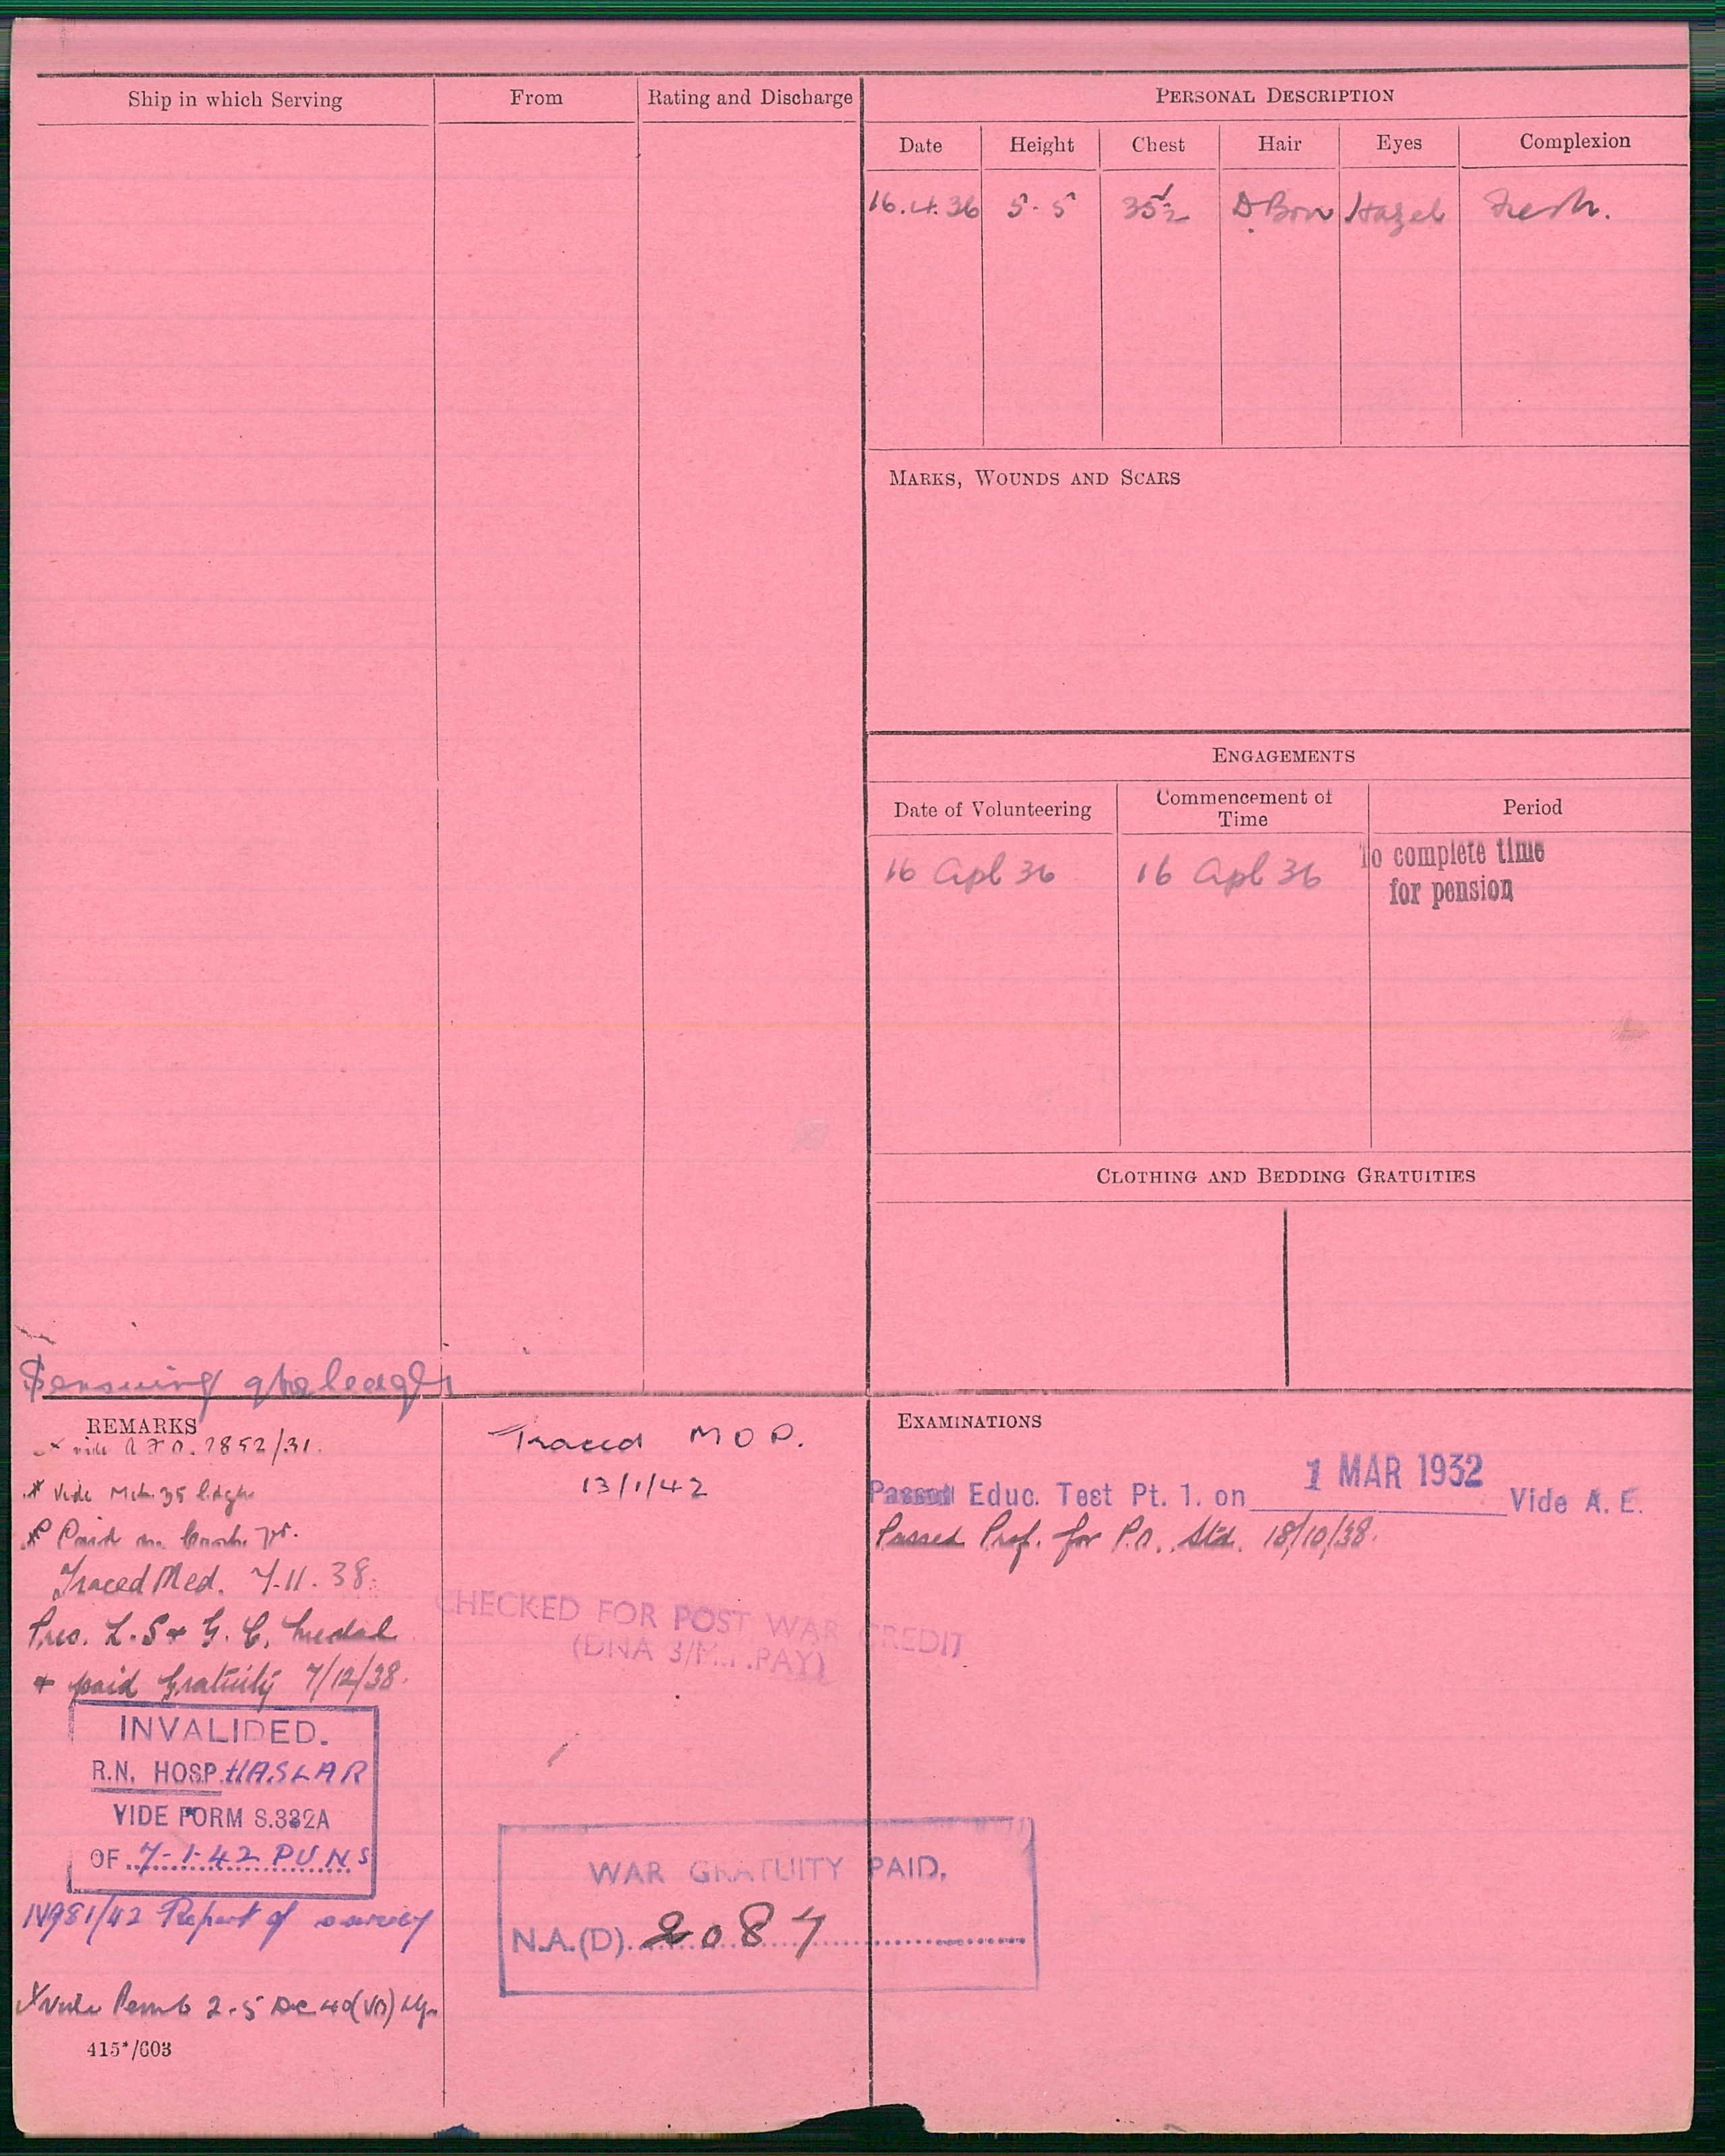 Ship in which Serving
From
Rating and Discharge
PERSONAL DESCRIPTION
Date
Height
Chest
Hair
Eyes
Complexion
16.4.36
5-5
35½
D Brn
Hazel
Fresh.
MARKS, WOUNDS AND SCARS
ENGAGEMENTS
Date of Volunteering
Commencement of
Time
Period
16 Apl 36
16 Apl 36
To complete time
for pension
CLOTHING AND BEDDING GRATUITIES
REMARKS
vide A.F.O. 2852/31.
Vide Mch. 35
Paid on
Traced Med. 7.11.38.
Pres. L.S & G.C. Medal
+ paid Gratuity 7/12/38.
INVALIDED.
R.N. HOSP. HASLAR
VIDE FORM S.332A
OF 7-1-42 PUNS
/42 Report of survey
Vide Pemb 2.5
415*/603
Traced M O P.
13/1/42
CHECKED FOR POST WAR CREDIT
(DNA 3/ PAY)
WAR GRATUITY PAID.
N.A.(D). 2087
EXAMINATIONS
Passed Educ. Test Pt. 1. on 1 MAR 1932 Vide A. E.
Passed Prof. for P.O. Std. 18/10/38.